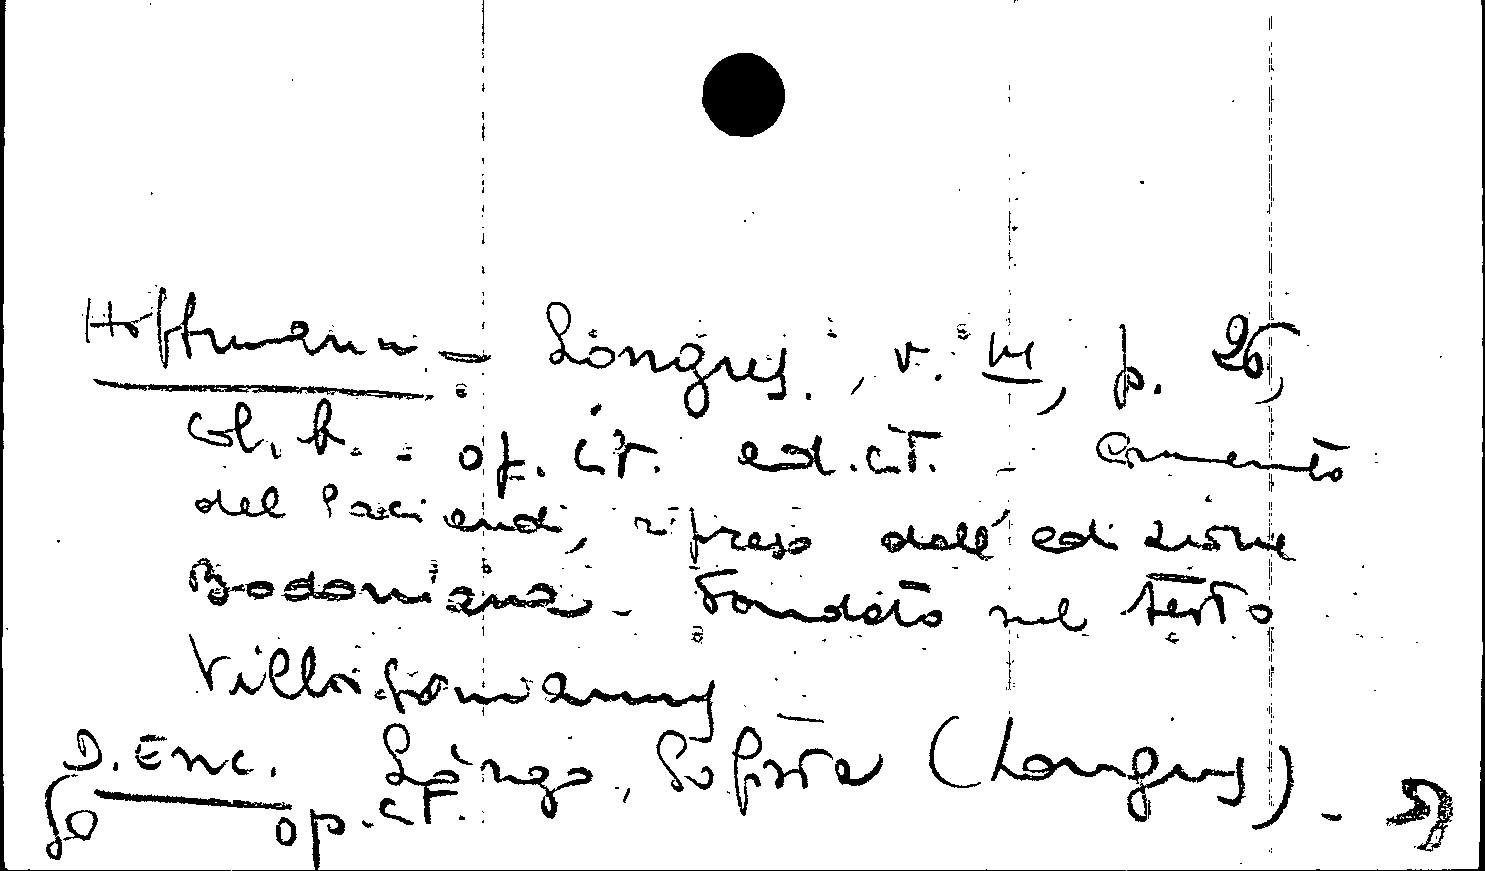 Hoffmann = Longus., v. III, p. 26,
col. b. - op. cit. ed. cit. - Commento
del Paciaudi, ripreso dall'edizione
Bodoniana - Fondato sul testo
Villoisonianus -
D. Enc. Longo, Sofista (Longus) -
op. cit.